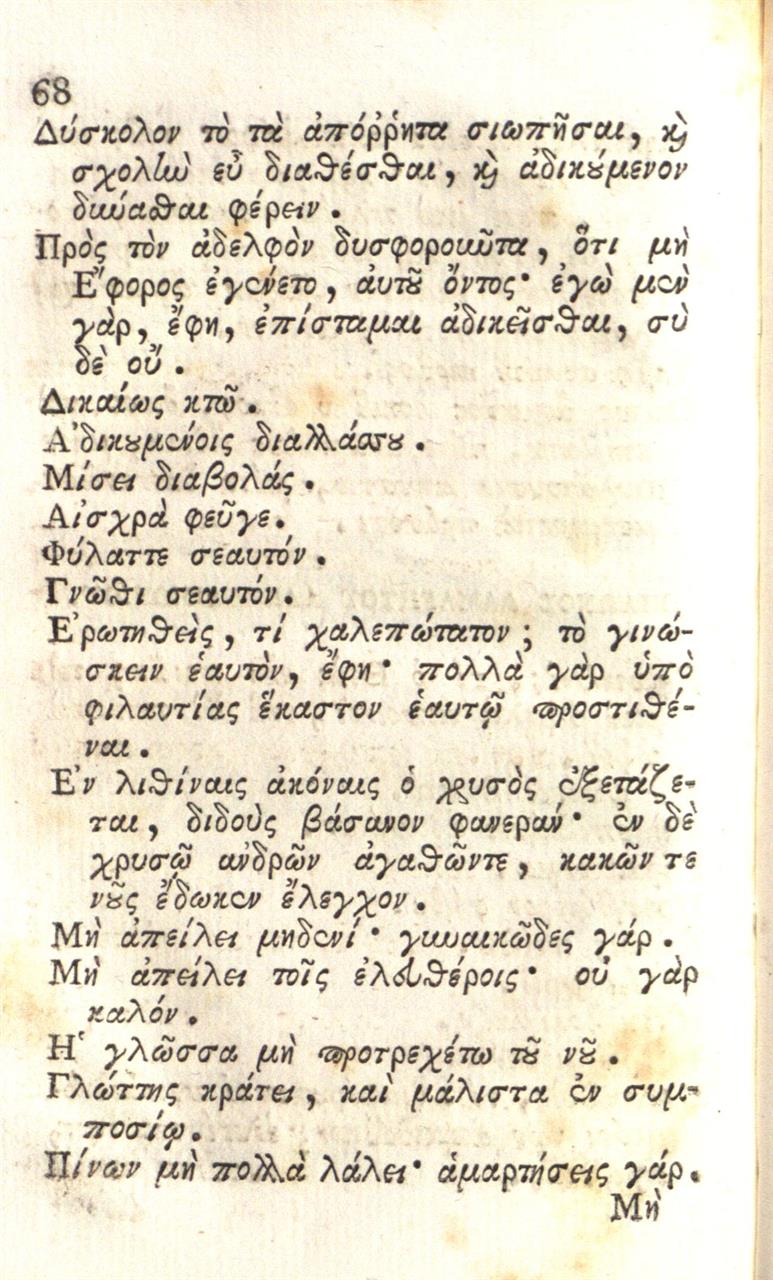 68
Δύσκολον τὸ τὰ ἀπόῤῥητα σιωπῆσαι, ϗ̀
σχολὴν εὖ διαθέσθαι, ϗ̀ ἀδικούμενον
δύναθαι φέρειν.
Πρὸς τὸν ἀδελφὸν δυσφοροιῶτα, ὅτι μὴ
Ἔφορος ἐγένετο, ἀυτοῦ ὄντος· ἐγὼ μὲν
γὰρ, ἔφη, ἐπίσταμαι ἀδικεῖσθαι, σὺ
δὲ οὔ.
Δικαίως κτῶ.
Ἀδικουμένοις διαλλάσσου.
Μίσει διαβολάς.
Αἰσχρὰ φεῦγε.
Φύλαττε σεαυτόν.
Γνῶθι σεαυτόν.
Ἐρωτηθεὶς, τί χαλεπώτατον; τὸ γινώ-
σκειν ἑαυτὸν, ἔφη· πολλὰ γὰρ ὑπὸ
φιλαυτίας ἕκαστον ἑαυτῷ προστιθέ-
ναι.
Ἐν λιθίναις ἀκόναις ὁ χρυσὸς ἐξετάζε-
ται, διδοὺς βάσανον φανεράν· ἐν δὲ
χρυσῷ ἀνδρῶν ἀγαθῶντε, κακῶν τε
νοῦς ἔδωκεν ἔλεγχον.
Μὴ ἀπείλει μηδενί· γυναικῶδες γάρ.
Μὴ ἀπείλει τοῖς ἐλευθέροις· οὐ γὰρ
καλόν.
Ἡ γλῶσσα μὴ προτρεχέτω τοῦ νοῦ.
Γλώττης κράτει, καὶ μάλιστα ἐν συμ-
ποσίῳ.
Πίνων μὴ πολλὰ λάλει· ἁμαρτήσεις γάρ.
Μὴ